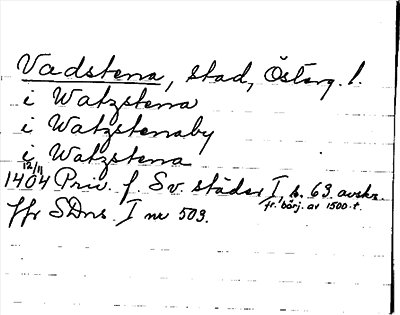 Vadstena, stad, Österg. l.
i Watzstena
i Watzstenaby
i Watzstena
12/11
1404 Priv. f. Sv. städer I, s. 63. avskr.
fr. börj. av 1500-t.
ffr SDns. I nr 503.